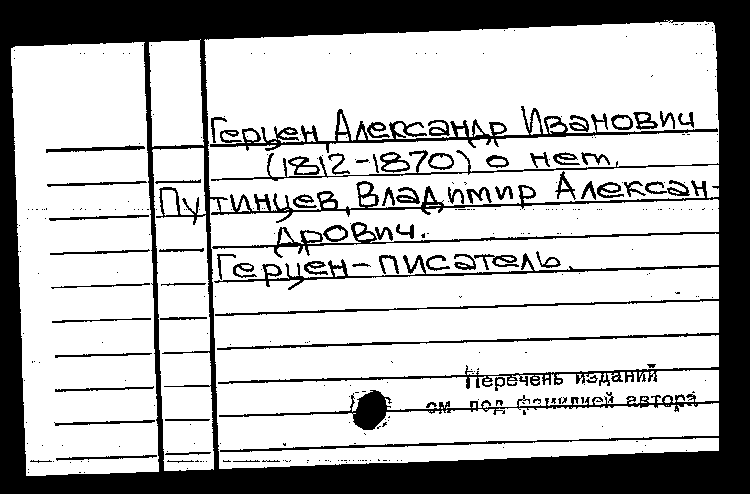 Герцен, Александр Иванович
(1812-1870) о нем.
Путинцев, Владимир Алексан-
дрович.
Герцен-писатель.
Перечень изданий
см. под фамилией автора